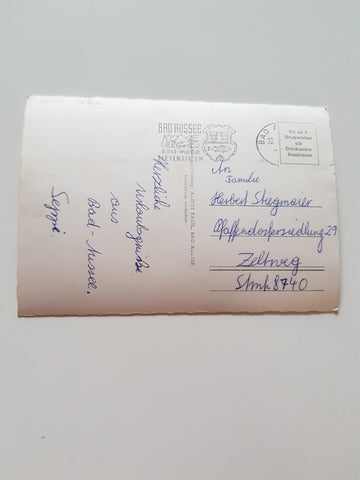 BAD AUSSEE
HEILKUREN
BAD
22.
Bis zu 5
Grußworten
als
Drucksache
frankieren
Herzliche
Urlaubsgrüße
aus
Bad-Aussee.
Seppi
An
Familie
Herbert Stegmaier
Pfaffendorfersiedlung 29
Zeltweg
Stmk 8740